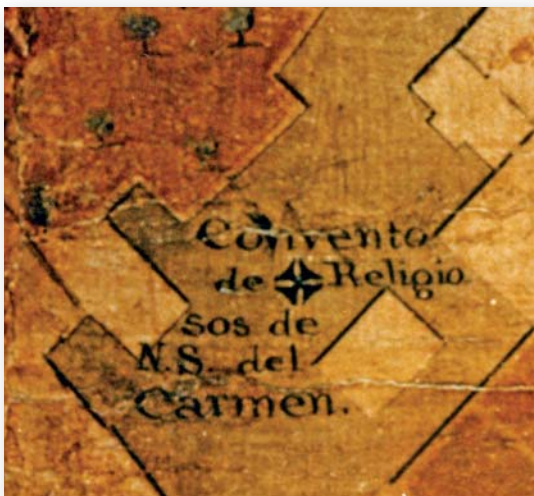 Convento
de Religio
sos de
N.S. del
Carmen.